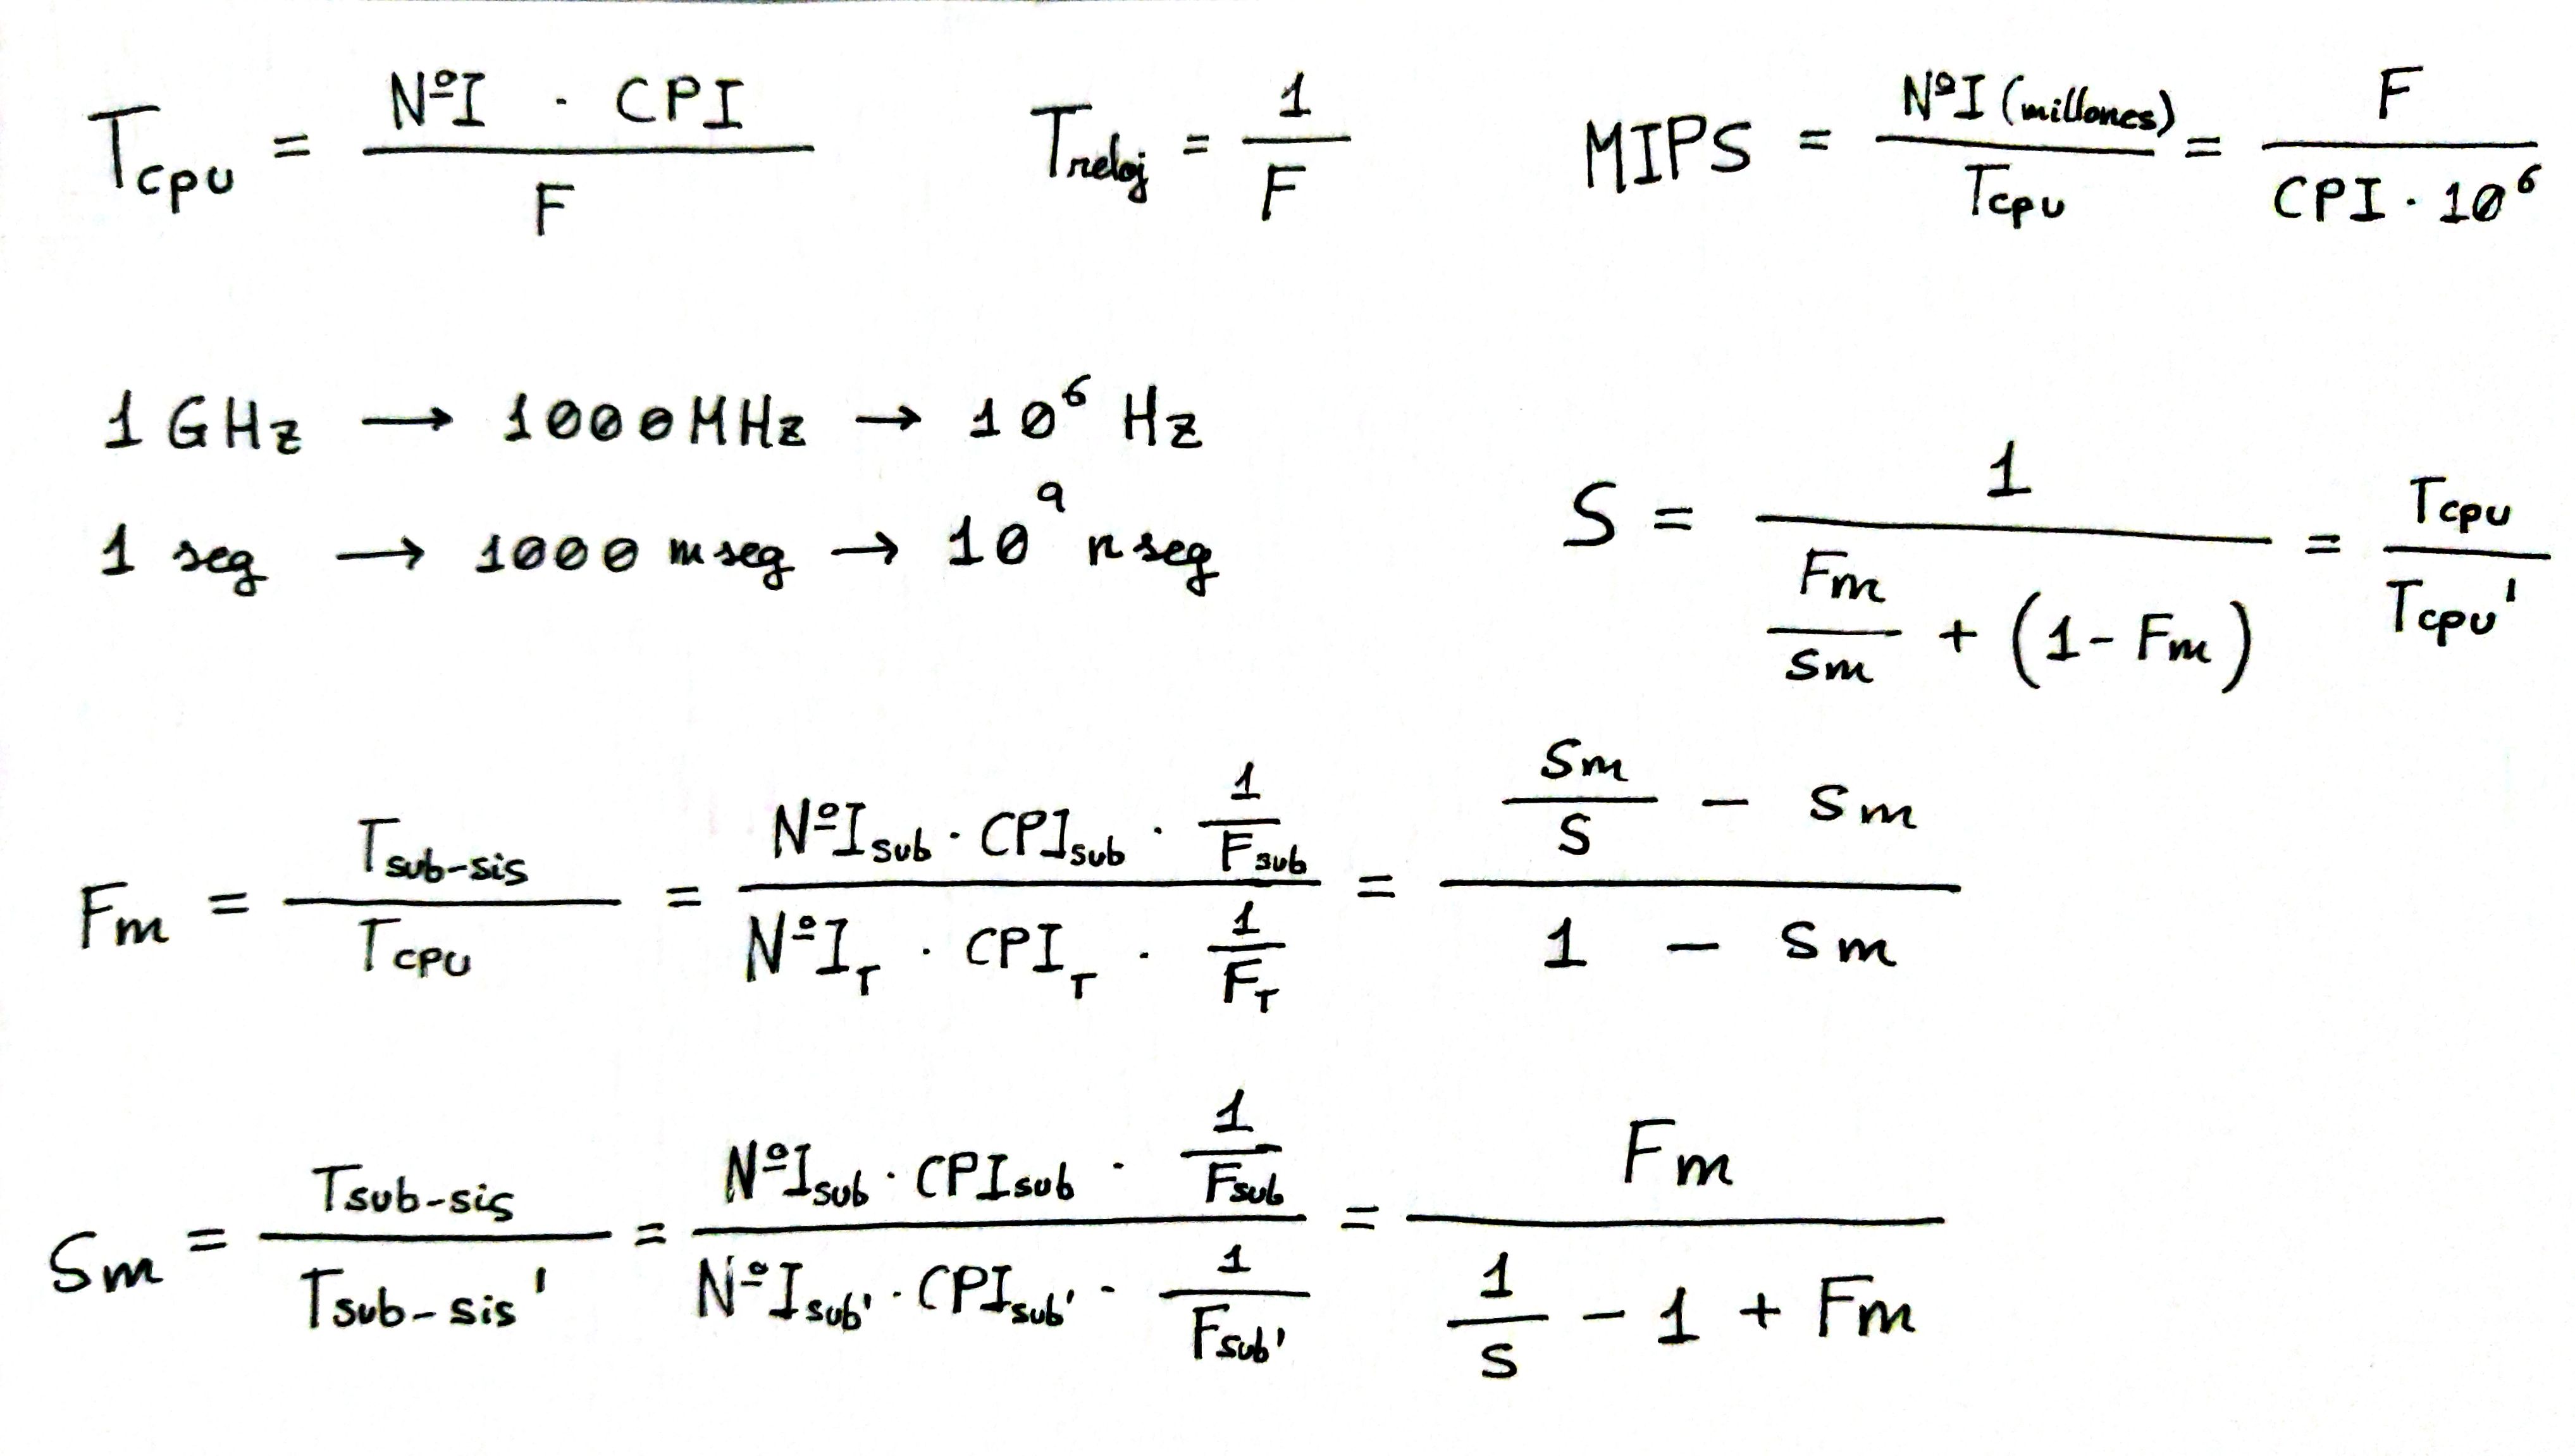 Tcpu = NºI · CPI / F    Treloj = 1 / F    MIPS = NºI (millones) / Tcpu = F / CPI · 10⁶
1 GHz → 1000 MHz → 10⁶ Hz
1 seg → 1000 mseg → 10⁹ nseg
S = 1 / (Fm / Sm + (1 - Fm)) = Tcpu / Tcpu'
Fm = Tsub-sis / Tcpu = (NºIsub · CPIsub · 1/Fsub) / (NºI_T · CPI_T · 1/F_T) = (Sm/S - Sm) / (1 - Sm)
Sm = Tsub-sis / Tsub-sis' = (NºIsub · CPIsub · 1/Fsub) / (NºIsub' · CPIsub' · 1/Fsub') = Fm / (1/S - 1 + Fm)